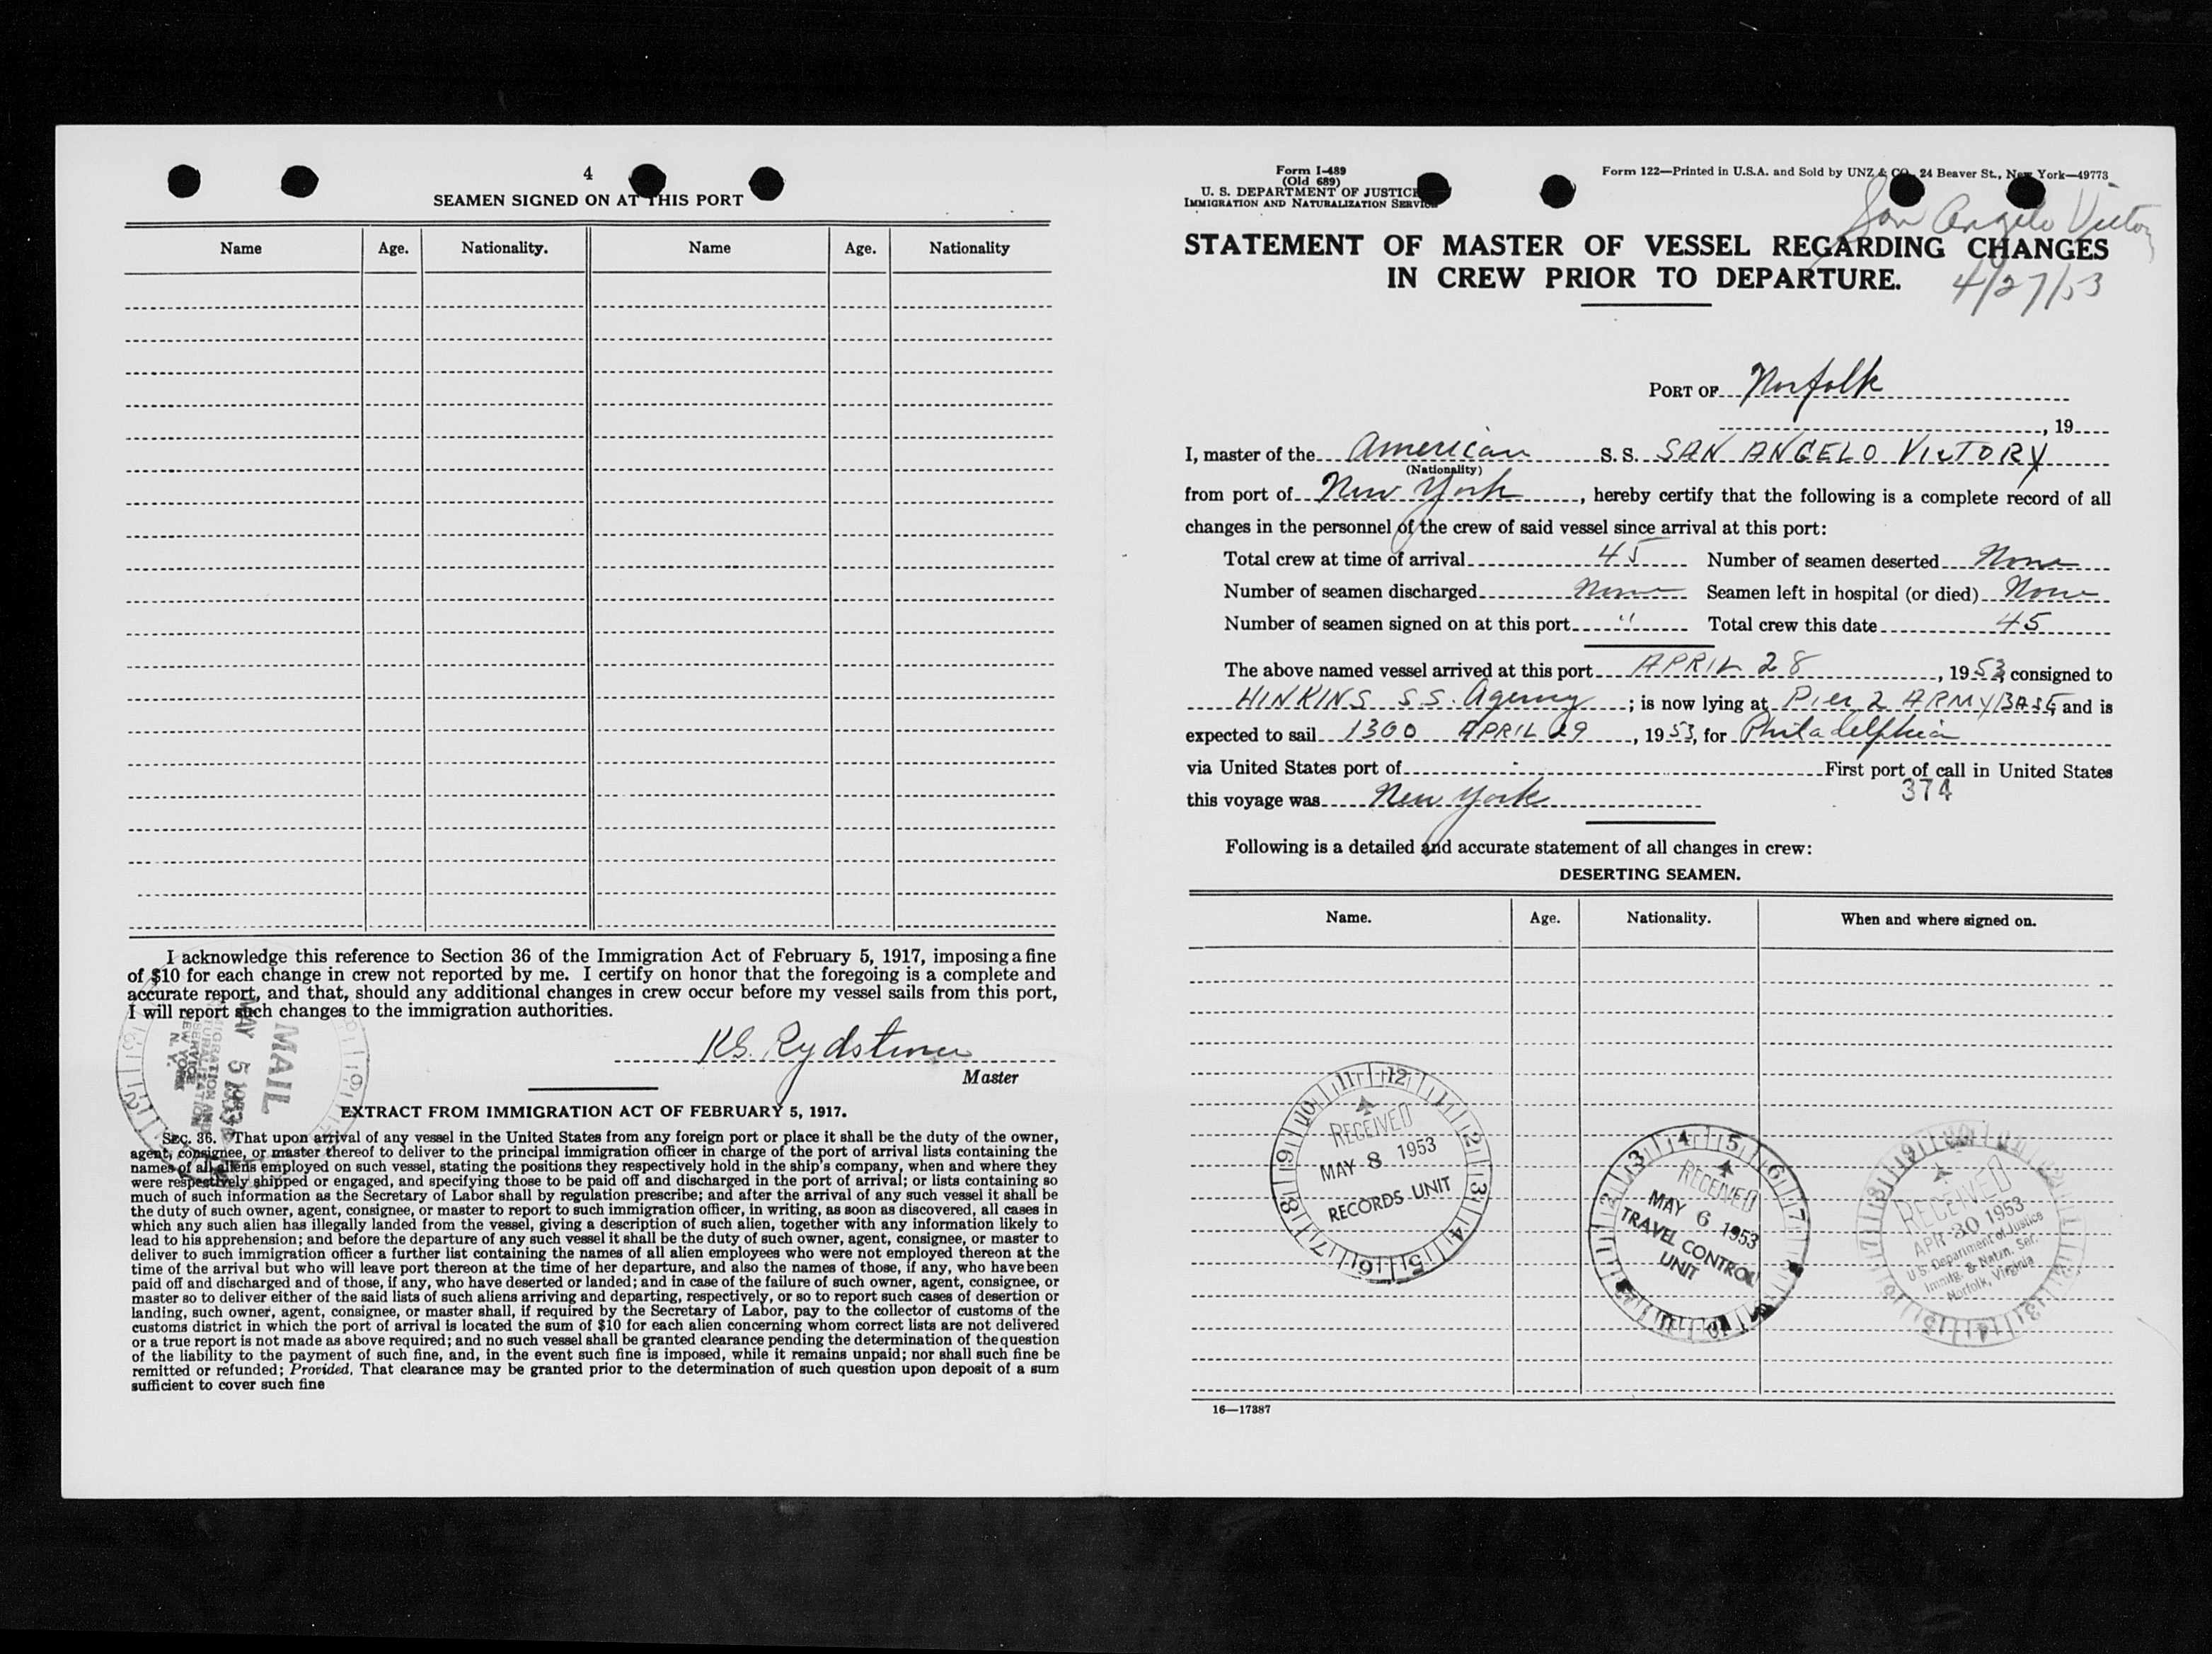 4
SEAMEN SIGNED ON AT THIS PORT
Name Age. Nationality. Name Age. Nationality
I acknowledge this reference to Section 36 of the Immigration Act of February 5, 1917, imposing a fine
of $10 for each change in crew not reported by me. I certify on honor that the foregoing is a complete and
accurate report, and that, should any additional changes in crew occur before my vessel sails from this port,
I will report such changes to the immigration authorities.
Master
MAIL
MAY 5
EXTRACT FROM IMMIGRATION ACT OF FEBRUARY 5, 1917.
SEC. 36. That upon arrival of any vessel in the United States from any foreign port or place it shall be the duty of the owner,
agent, consignee, or master thereof to deliver to the principal immigration officer in charge of the port of arrival lists containing the
names of all aliens employed on such vessel, stating the positions they respectively hold in the ship's company, when and where they
were respectively shipped or engaged, and specifying those to be paid off and discharged in the port of arrival; or lists containing so
much of such information as the Secretary of Labor shall by regulation prescribe; and after the arrival of any such vessel it shall be
the duty of such owner, agent, consignee, or master to report to such immigration officer, in writing, as soon as discovered, all cases in
which any such alien has illegally landed from the vessel, giving a description of such alien, together with any information likely to
lead to his apprehension; and before the departure of any such vessel it shall be the duty of such owner, agent, consignee, or master to
deliver to such immigration officer a further list containing the names of all alien employees who were not employed thereon at the
time of the arrival but who will leave port thereon at the time of her departure, and also the names of those, if any, who have been
paid off and discharged and of those, if any, who have deserted or landed; and in case of the failure of such owner, agent, consignee, or
master so to deliver either of the said lists of such aliens arriving and departing, respectively, or so to report such cases of desertion or
landing, such owner, agent, consignee, or master shall, if required by the Secretary of Labor, pay to the collector of customs of the
customs district in which the port of arrival is located the sum of $10 for each alien concerning whom correct lists are not delivered
or a true report is not made as above required; and no such vessel shall be granted clearance pending the determination of the question
of the liability to the payment of such fine, and, in the event such fine is imposed, while it remains unpaid; nor shall such fine be
remitted or refunded; Provided, That clearance may be granted prior to the determination of such question upon deposit of a sum
sufficient to cover such fine
Form I-489
(Old 689)
U. S. DEPARTMENT OF JUSTICE
IMMIGRATION AND NATURALIZATION SERVICE
Form 122—Printed in U.S.A. and Sold by UNZ & CO., 24 Beaver St., New York—49773
San Angelo Victory
4/27/53
STATEMENT OF MASTER OF VESSEL REGARDING CHANGES
IN CREW PRIOR TO DEPARTURE.
PORT OF Norfolk
, 19
I, master of the American S. S. SAN ANGELO VICTORY
(Nationality)
from port of New York, hereby certify that the following is a complete record of all
changes in the personnel of the crew of said vessel since arrival at this port:
Total crew at time of arrival 45 Number of seamen deserted None
Number of seamen discharged None Seamen left in hospital (or died) None
Number of seamen signed on at this port " Total crew this date 45
The above named vessel arrived at this port APRIL 28, 1953 consigned to
HINKINS S.S. Agency; is now lying at Pier 2 ARMY BASE, and is
expected to sail 1300 APRIL 29, 1953, for Philadelphia
via United States port of First port of call in United States
this voyage was New York
374
Following is a detailed and accurate statement of all changes in crew:
DESERTING SEAMEN.
Name. Age. Nationality. When and where signed on.
RECEIVED
MAY 8 1953
RECORDS UNIT
RECEIVED
MAY 6 1953
TRAVEL CONTROL
UNIT
RECEIVED
APR 30 1953
U.S. Department of Justice
Immig. & Natzn. Ser.
Norfolk, Virginia
16—17387